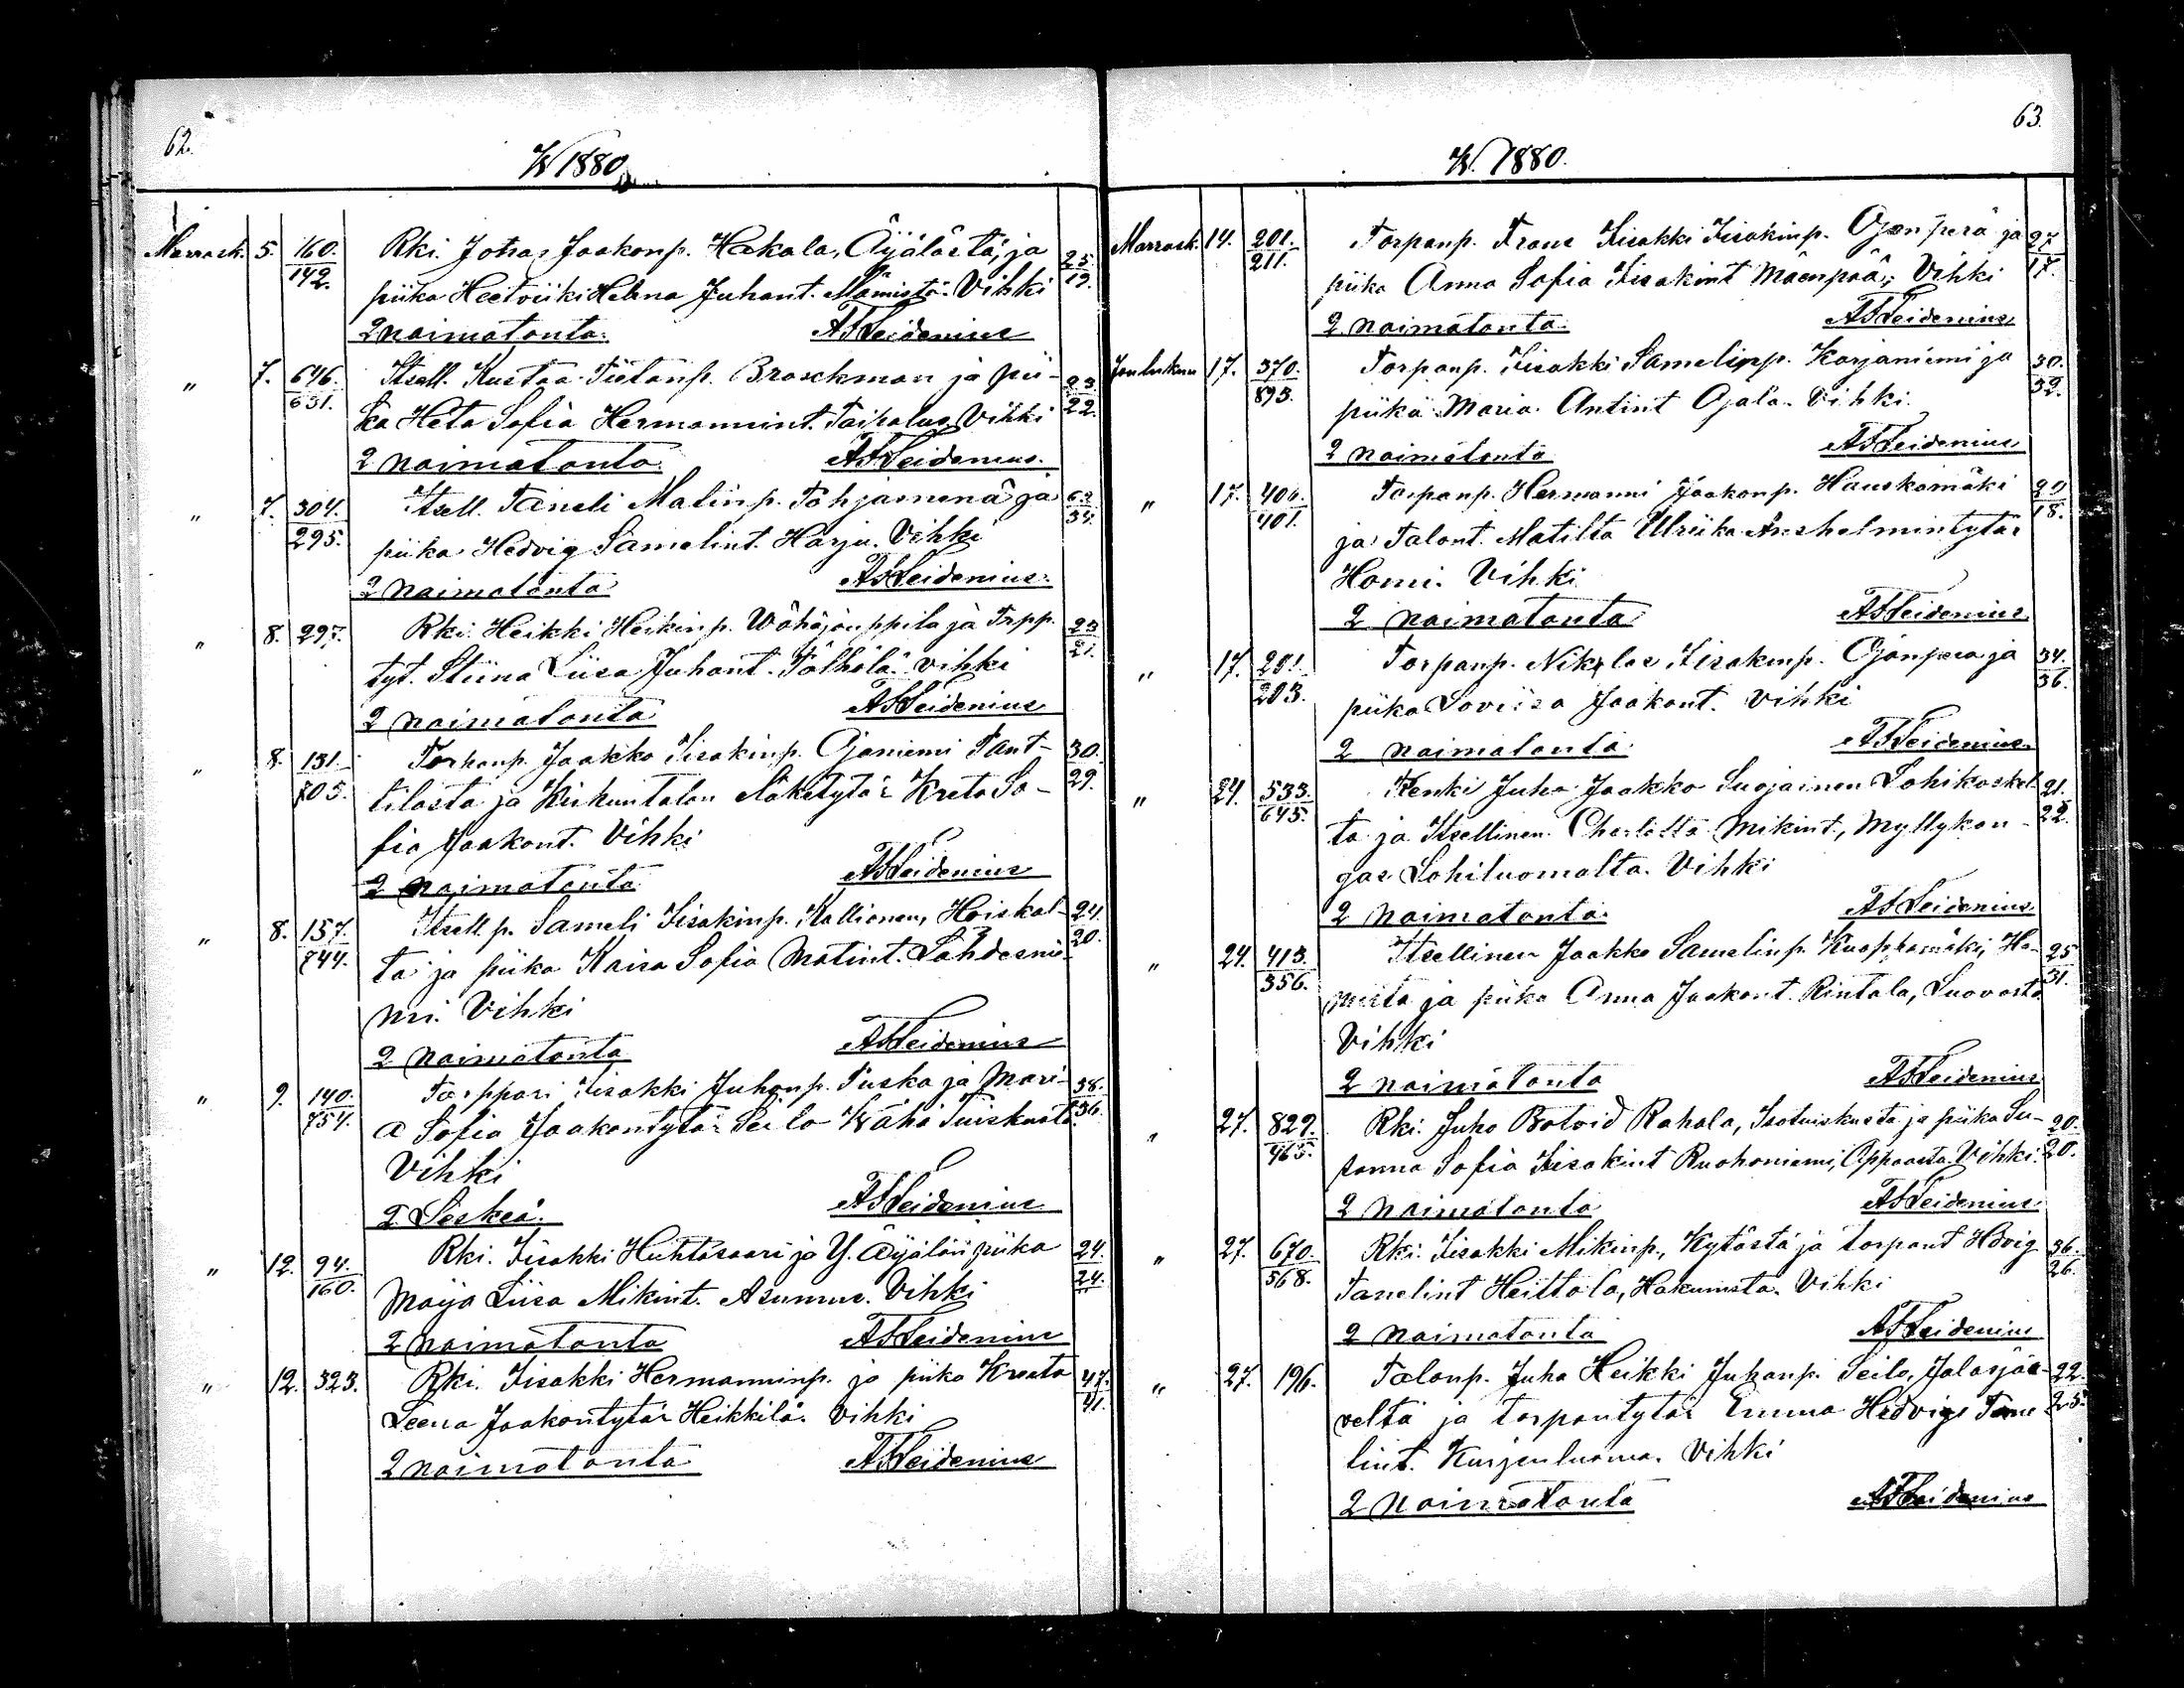 62.
W 1880.
Marrask. 5. 160. Rki. Johas Jaakonp. Hakala, Äÿälästä, ja 25.
142. piika Heetviiki Helena Juhant. Mämistä. Vihki 19.
2 naimatonta. AFLeidenius
" 7. 646. Itsell. Kustaa Tietanp. Braschman ja pii- 23.
631. ka Heta Sofia Hermannint. Taipalus Vihki 22.
2 naimatonta. AFLeidenius.
" 7. 304. Itsell. Taneli Matinp. Pohjasmenä ja 63
295. piika Hedvig Samelint. Harju. Vihki 34.
2 naimatonta AFLeidenius.
" 8. 297. Rki. Heikki Heikinp. Wähäjouppila ja Trpp. 23
tyt. Stiina Liisa Juhant. Pölhölä. vihki 21.
2 naimatonta AFLeidenius
" 8. 131. Torpanp. Jaakko Iisakinp. Ojaniemi Pant- 30.
705. tilasta ja Keikuntalon elaketytär Kreta So- 29.
fia Jaakont. Vihki
2 naimatonta AFLeidenius
" 8. 157. Itsell. p. Sameli Iisakinp. Kallionen, Hoiskal- 24.
744. ta ja piika Kaisa Sofia Matint. Lähdesnie- 20.
mi. Vihki
2 naimatonta AFLeidenius
" 9. 140. Torppari Iisakki Juhonp. Puska ja Mari- 38.
754. a Sofia Jaakontytär Seilo Wähä Tuiskusta. 36.
Vihki
2 Leskeä. AFLeidenius
" 12. 94. Rki. Iisakki Huhtasaari ja Y. Äÿälän piika 24.
160. Maija Liisa Mikint. Asunmu. Vihki 24.
2 naimatonta AFLeidenius
" 12. 323. Rki. Iisakki Hermanninp. ja piika Kreeta 47.
Leena Jaakontytär Heikkilä. Vihki 41.
2 naimatonta AFLeidenius
63.
W. 1880.
Marrask. 14. 201. Torpanp. Frans Iisakki Iisakinp. Ojanperä ja 27
211. piika Anna Sofia Iisakint Mäenpää; Vihki 17.
2 naimatonta. AFLeidenius
Joulukuu 17. 370. Torpanp. Iisakki Samelinp. Karjaniemi ja 30.
893. piika Maria Antint Ojala. Vihki. 32.
2 naimatonta AFLeidenius
" 17. 406. Torpanp. Hermanni Jaakonp. Hauskamäki 20
401. ja Talont. Matilta Ulriika Anshelmintytär 18.
Homi. Vihki
2 naimatonta AFLeidenius
" 17. 201. Torpanp. Nikolas Iisakinp. Ojanpera ja 34.
203. piika Loviisa Jaakont. vihki 36.
2 naimatonta. AFLeidenius.
" 24. 533. Renki Juho Jaakko Suojainen Lohikoskel- 21.
645. ta ja Itsellinen Charlotta Mikint., Myllykan- 22.
gas Lohiluomalta. Vihki
2 naimatonta. AFLeidenius
" 24. 413. Itsellinen Jaakko Samelinp. Kuoppamäki, Ha- 25
356. mista ja piika Anna Jaakont. Rintala, Luovasta 31.
Vihki
2 naimatonta AFLeidenius
" 27. 829. Rki. Juho Botvid Rahola, Isotuiskusta ja piika Su- 20.
465. sanna Sofia Iisakint Ruohoniemi, Appaasta. Vihki. 20.
2 naimatonta AFLeidenius.
" 27. 670. Rki. Iisakki Mikinp., Kytästä ja torpant Hdvig 36.
568. Tanelint Heittola, Hakunista. Vihki 26.
2 naimatonta AFLeidenius
" 27. 196. Talonp. Juha Heikki Juhanp. Seilo, Jalasjär- 22.
veltä ja torpantytär Emma Hedviga Tane 25.
lint. Kurjenluoma. Vihki
2 naimatonta AFLeidenius